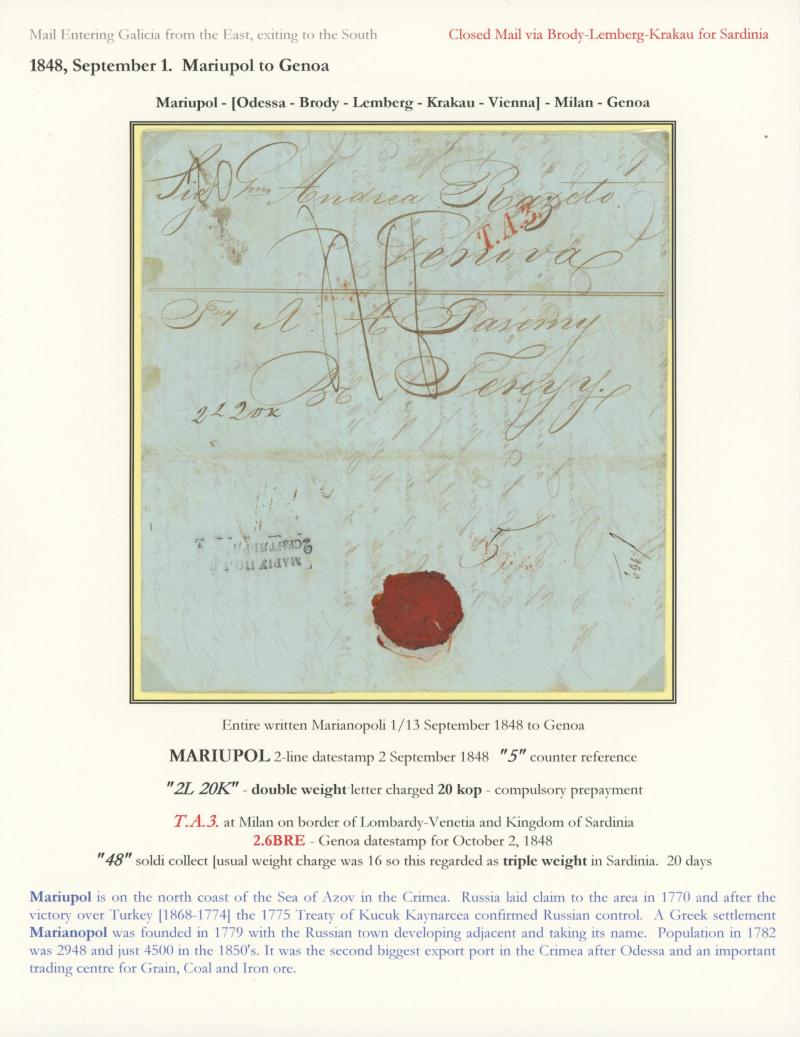 Mail Entering Galicia from the East, exiting to the South
Closed Mail via Brody-Lemberg-Krakau for Sardinia
1848, September 1. Mariupol to Genoa
Mariupol - [Odessa - Brody - Lemberg - Krakau - Vienna] - Milan - Genoa
Andrea
T.A.3.
Genova
2L 20K
5
Entire written Marianopoli 1/13 September 1848 to Genoa
MARIUPOL 2-line datestamp 2 September 1848 "5" counter reference
"2L 20K" - double weight letter charged 20 kop - compulsory prepayment
T.A.3. at Milan on border of Lombardy-Venetia and Kingdom of Sardinia
2.6BRE - Genoa datestamp for October 2, 1848
"48" soldi collect [usual weight charge was 16 so this regarded as triple weight in Sardinia. 20 days
Mariupol is on the north coast of the Sea of Azov in the Crimea. Russia laid claim to the area in 1770 and after the
victory over Turkey [1868-1774] the 1775 Treaty of Kucuk Kaynarcea confirmed Russian control. A Greek settlement
Marianopol was founded in 1779 with the Russian town developing adjacent and taking its name. Population in 1782
was 2948 and just 4500 in the 1850's. It was the second biggest export port in the Crimea after Odessa and an important
trading centre for Grain, Coal and Iron ore.